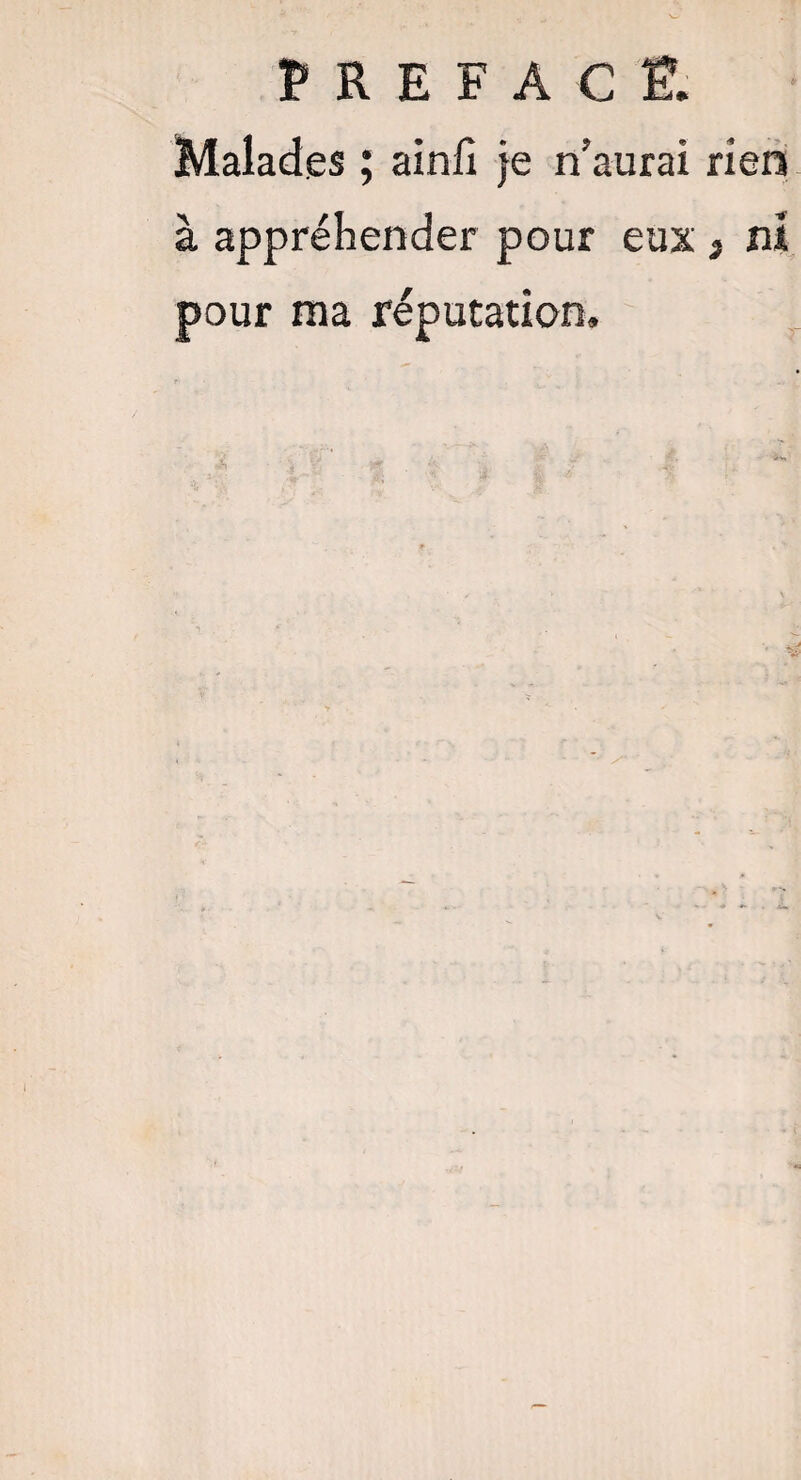 PREFACE.
Malades ; ainſi je n'aurai rien
à appréhender pour eux, ni
pour ma réputation.